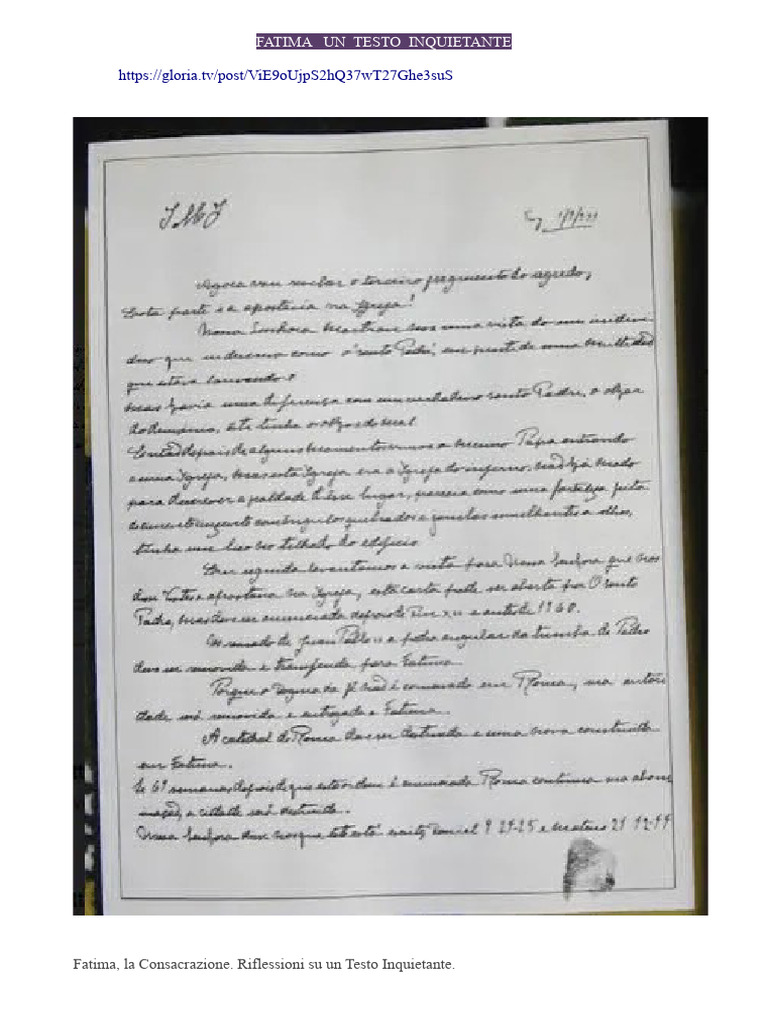 FATIMA UN TESTO INQUIETANTE
https://gloria.tv/post/ViE9oUjpS2hQ37wT27Ghe3suS
JMJ
Tuy 1/9/1944
Agora vou revelar o terceiro fragmento do segredo;
Esta parte é a apostasia na Igreja!
Nossa Senhora mostrou nos uma vista do um individuo
que eu descrevo como o 'santo Padre', em frente de uma multidão
que estava louvando o
Mas havia uma diferença com um verdadeiro santo Padre, o olhar
do demonio, este tinha o olhos do mal
Então depois de alguns momentos vimos o mesmo Papa entrando
a uma Igreja, mas esta Igreja era a Igreja do inferno, não há modo
para descrever a fealdade d'êsse lugar, parecia como uma fortaleza feita
de cimento cinzento com ângulos quebrados e janelas semelhantes a olhos,
tinha um bico no telhado do edificio
Em seguida levantamos a vista para Nossa Senhora que nos
disse Vistes a apostasia na Igreja, esta carta pode ser aberta por O santo
Padre, mas deve ser anunciada depois de Pio XII e antes de 1960.
No reinado de Juan Pablo II a pedra angular da tumba de Pedro
deve ser removida e transferida para Fatima.
Porque o dogma da fé não é conservado em Roma, sua autori
dade será removida e entregada a Fatima.
A catedral de Roma deve ser destruida e uma nova construida
em Fatima.
Se 69 semanas depois de que esta ordem é anunciada Roma continua sua abom
inação, a cidade será destruida.
Nossa Senhora disse nos que isto está escrito, Daniel 9 24-25 e Mateus 21 42-44
Fatima, la Consacrazione. Riflessioni su un Testo Inquietante.